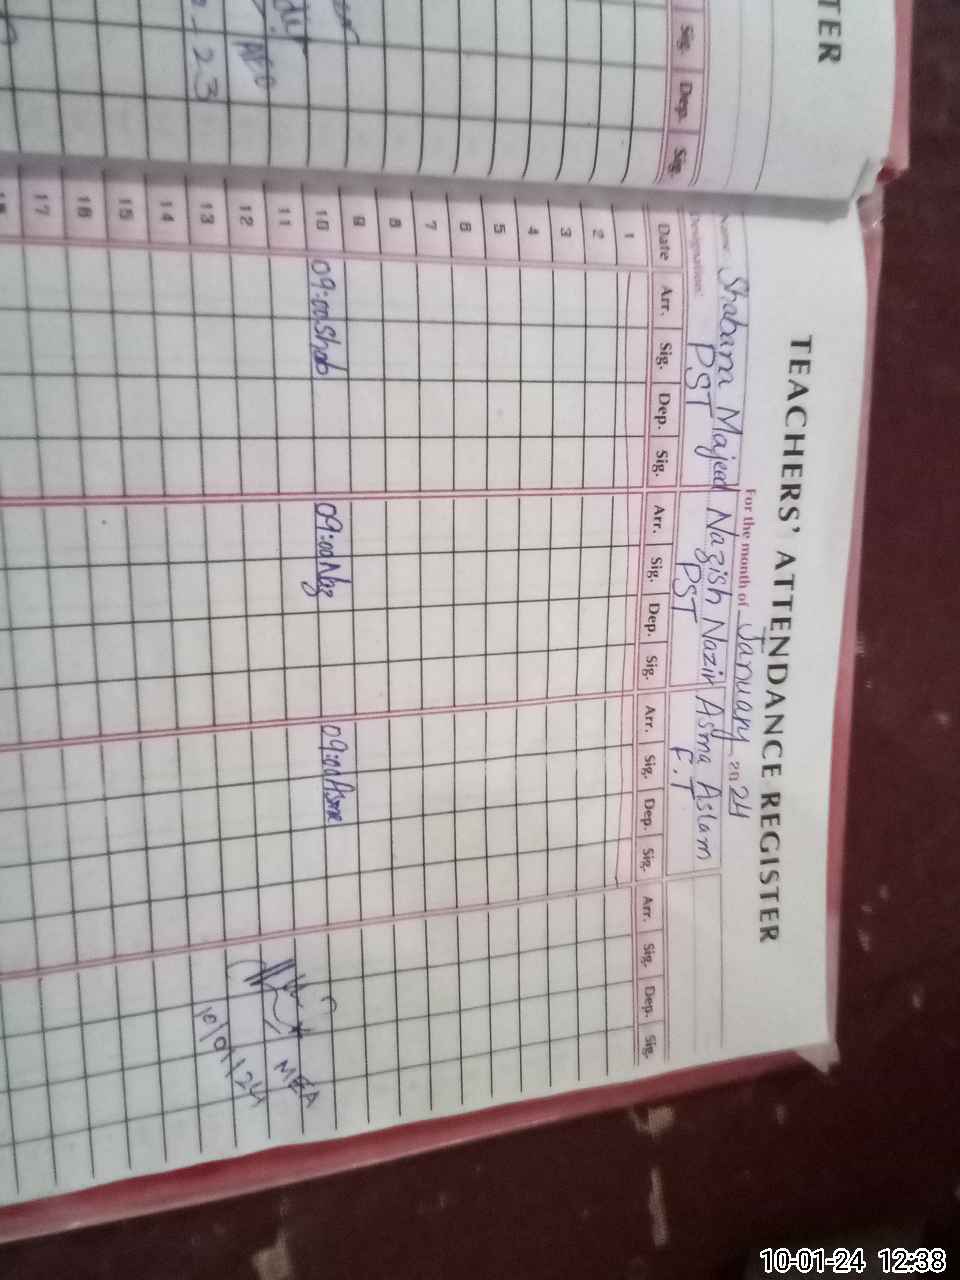 TER
Sig. Dep. Sig.
23
TEACHERS' ATTENDANCE REGISTER
For the month of January 2024
Name: Shabam Majeed Nazish Nazir Asma Aslam
Designation: PST PST F.T
Date Arr. Sig. Dep. Sig. Arr. Sig. Dep. Sig. Arr. Sig. Dep. Sig. Arr. Sig. Dep. Sig.
1
2
3
4
5
6
7
8
9
10 09:00 Shab 09:00 Naz 09:00 Asma
11 MEA
12
13 10/01/24
14
15
16
17
10-01-24 12:38